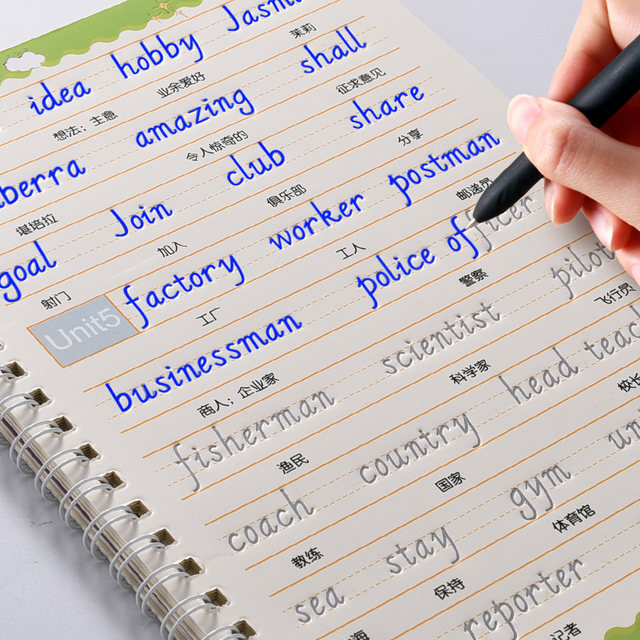 idea hobby Jasm
想法；主意 业余爱好 茉莉
amazing shall
令人惊奇的 征求意见
berra club share
堪培拉 俱乐部 分享
goal Join worker postman
射门 加入 工人 邮递员
Unit5 factory police officer
工厂 警察
businessman scientist pilot
商人；企业家 科学家 飞行员
fisherman country head teac
渔民 国家 校长
coach gym un
教练 体育馆
sea stay reporter
海 保持 记者